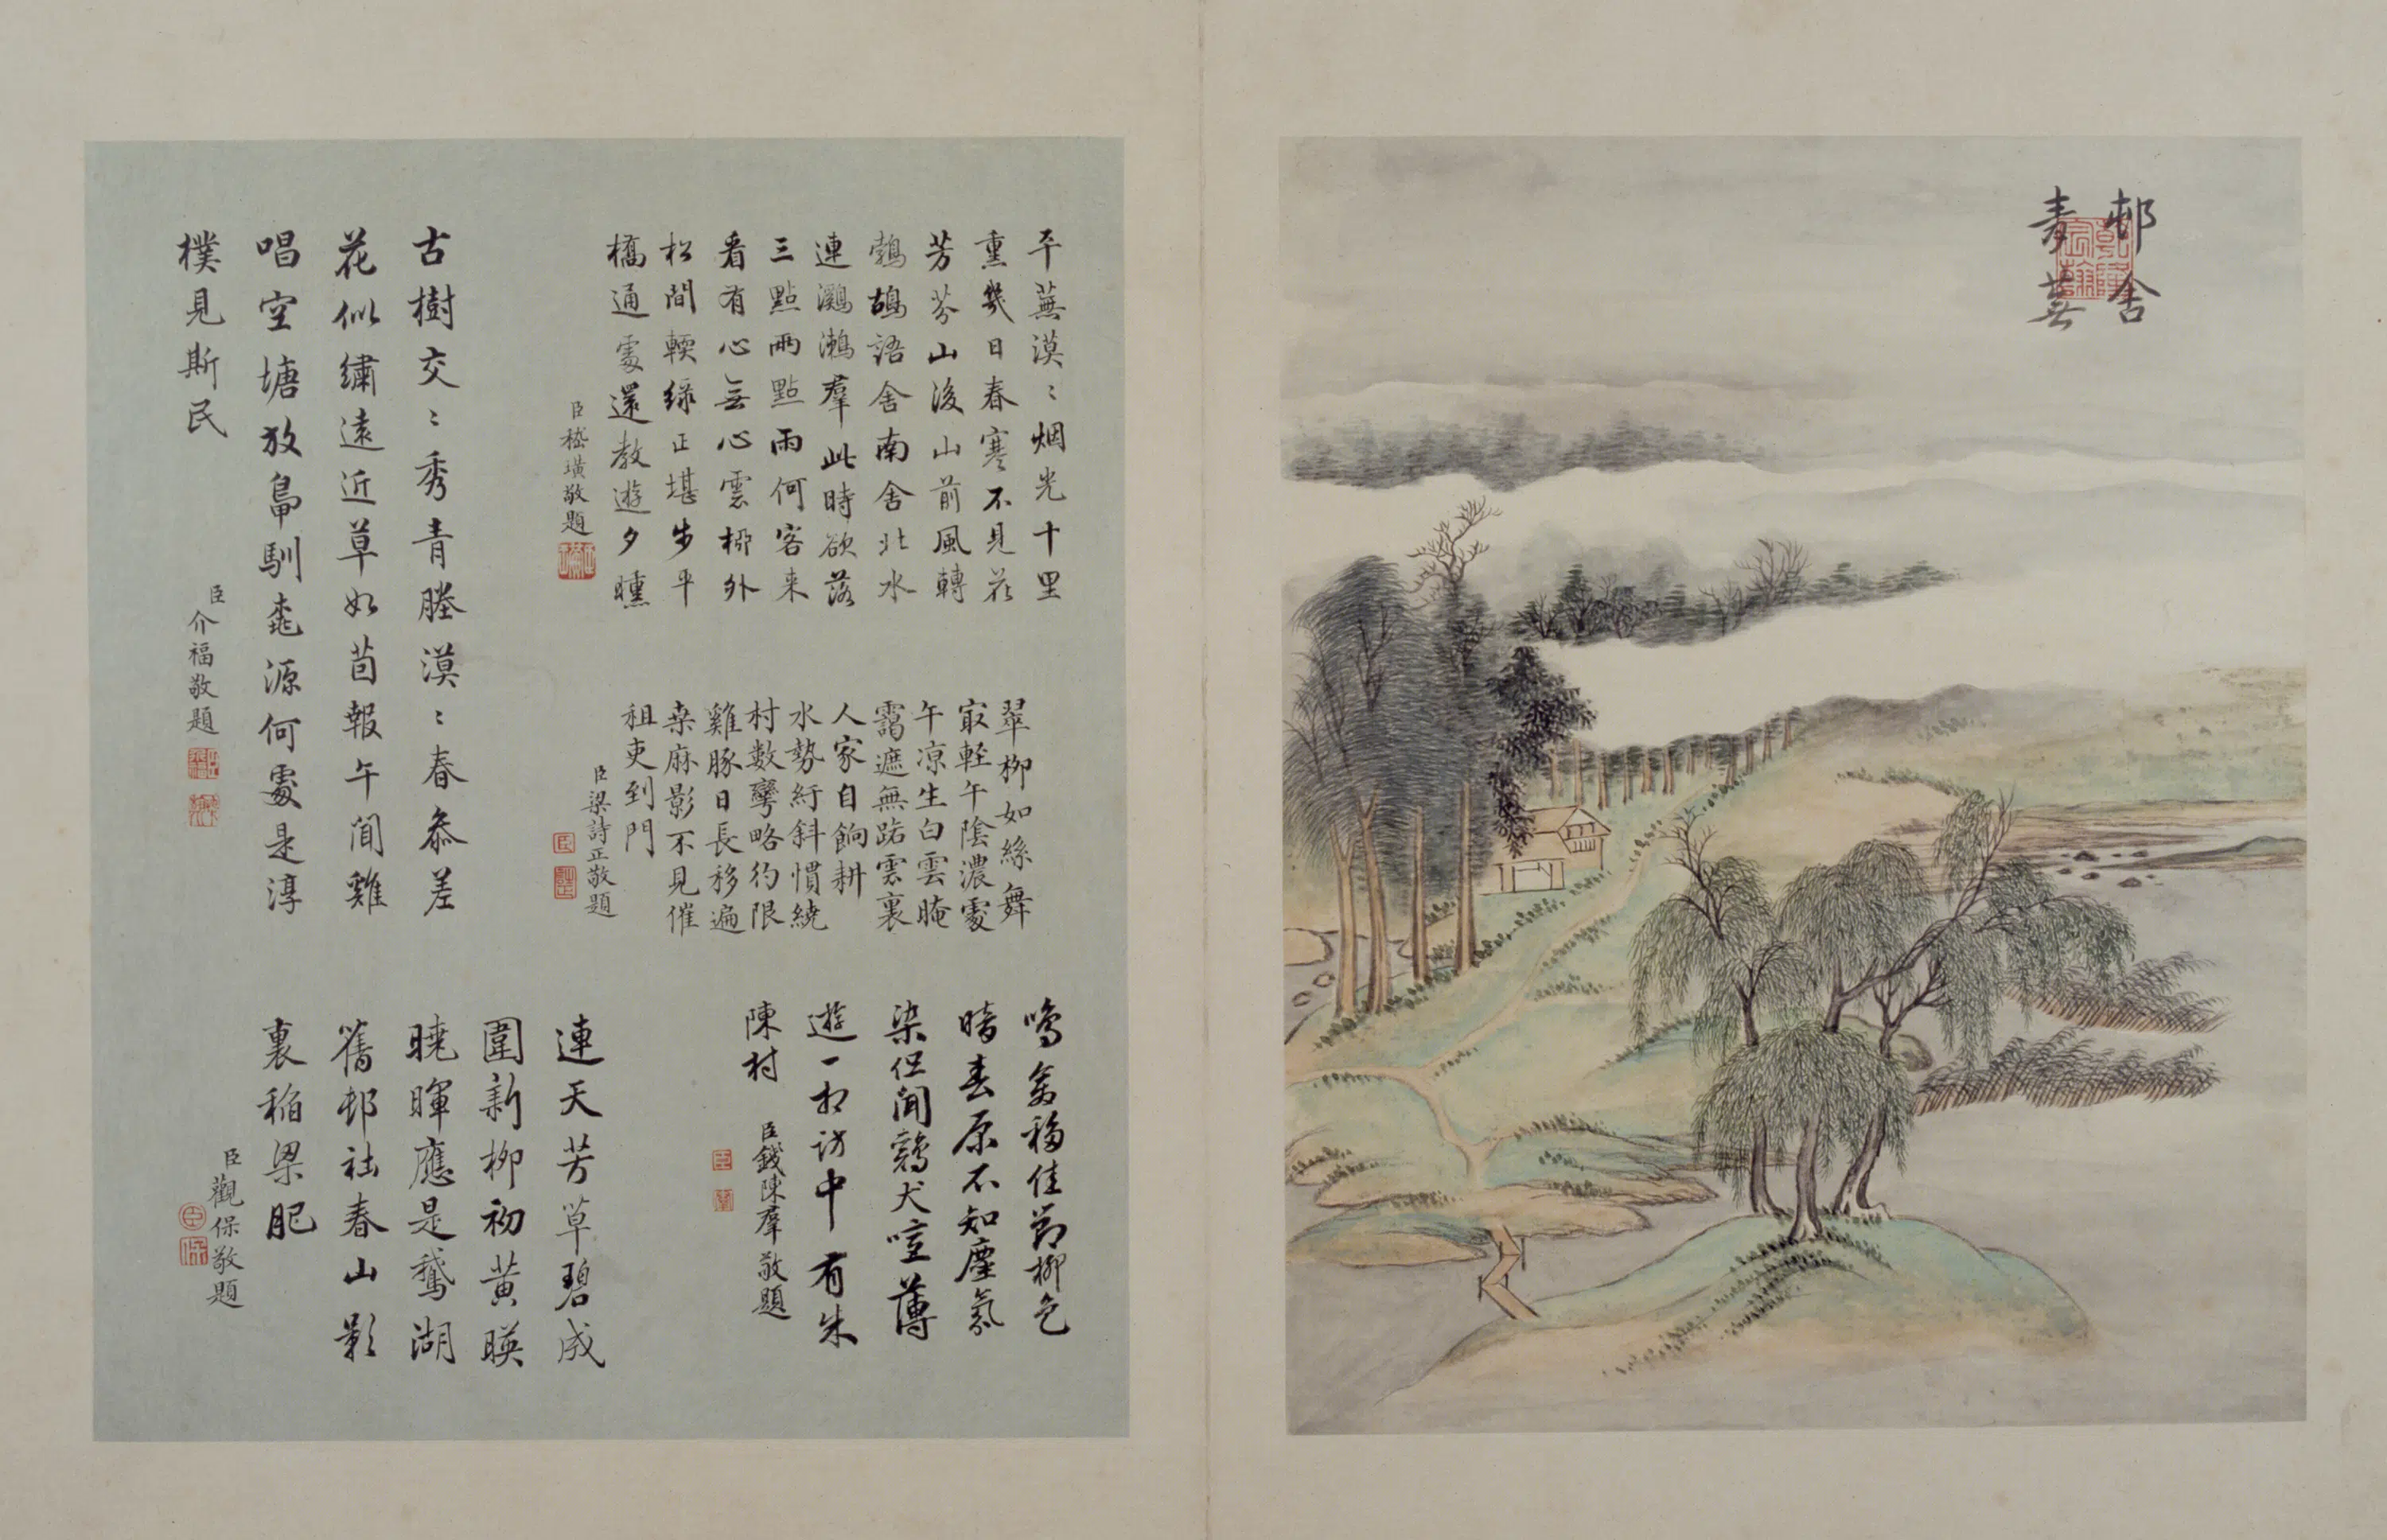 邨舍
青蕪
乾隆
宸翰
平蕪漠〻烟光十里
熏幾日春寒不見花
芳芬山後山前風轉
鷓鴣語舍南舍北水
連鸂鶒羣此時欲落
三點兩點雨何客来
看有心無心雲柳外
松間輭綠正堪步平
橋通處還教遊夕曛
臣嵇璜敬題
翠柳如絲舞
㝡輕午陰濃處
午凉生白雲晻
靄遮無跡雲裏
人家自餉耕
水勢紆斜慣繞
村數彎略彴限
雞豚日長移遍
桒麻影不見催
租吏到門
臣梁詩正敬題
鳴禽穆佳節柳色
暗春原不知塵氛
染但聞鷄犬喧薄
遊一相訪中有朱
陳村
臣錢陳羣敬題
古樹交〻秀青塍漠〻春叅差
花似繡遠近草如茵報午聞雞
唱空塘放鳧馴桃源何處是淳
樸見斯民
臣介福敬題
連天芳草碧成
圍新柳初黄暎
曉暉應是鵞湖
舊邨社春山影
裏稲粱肥
臣觀保敬題